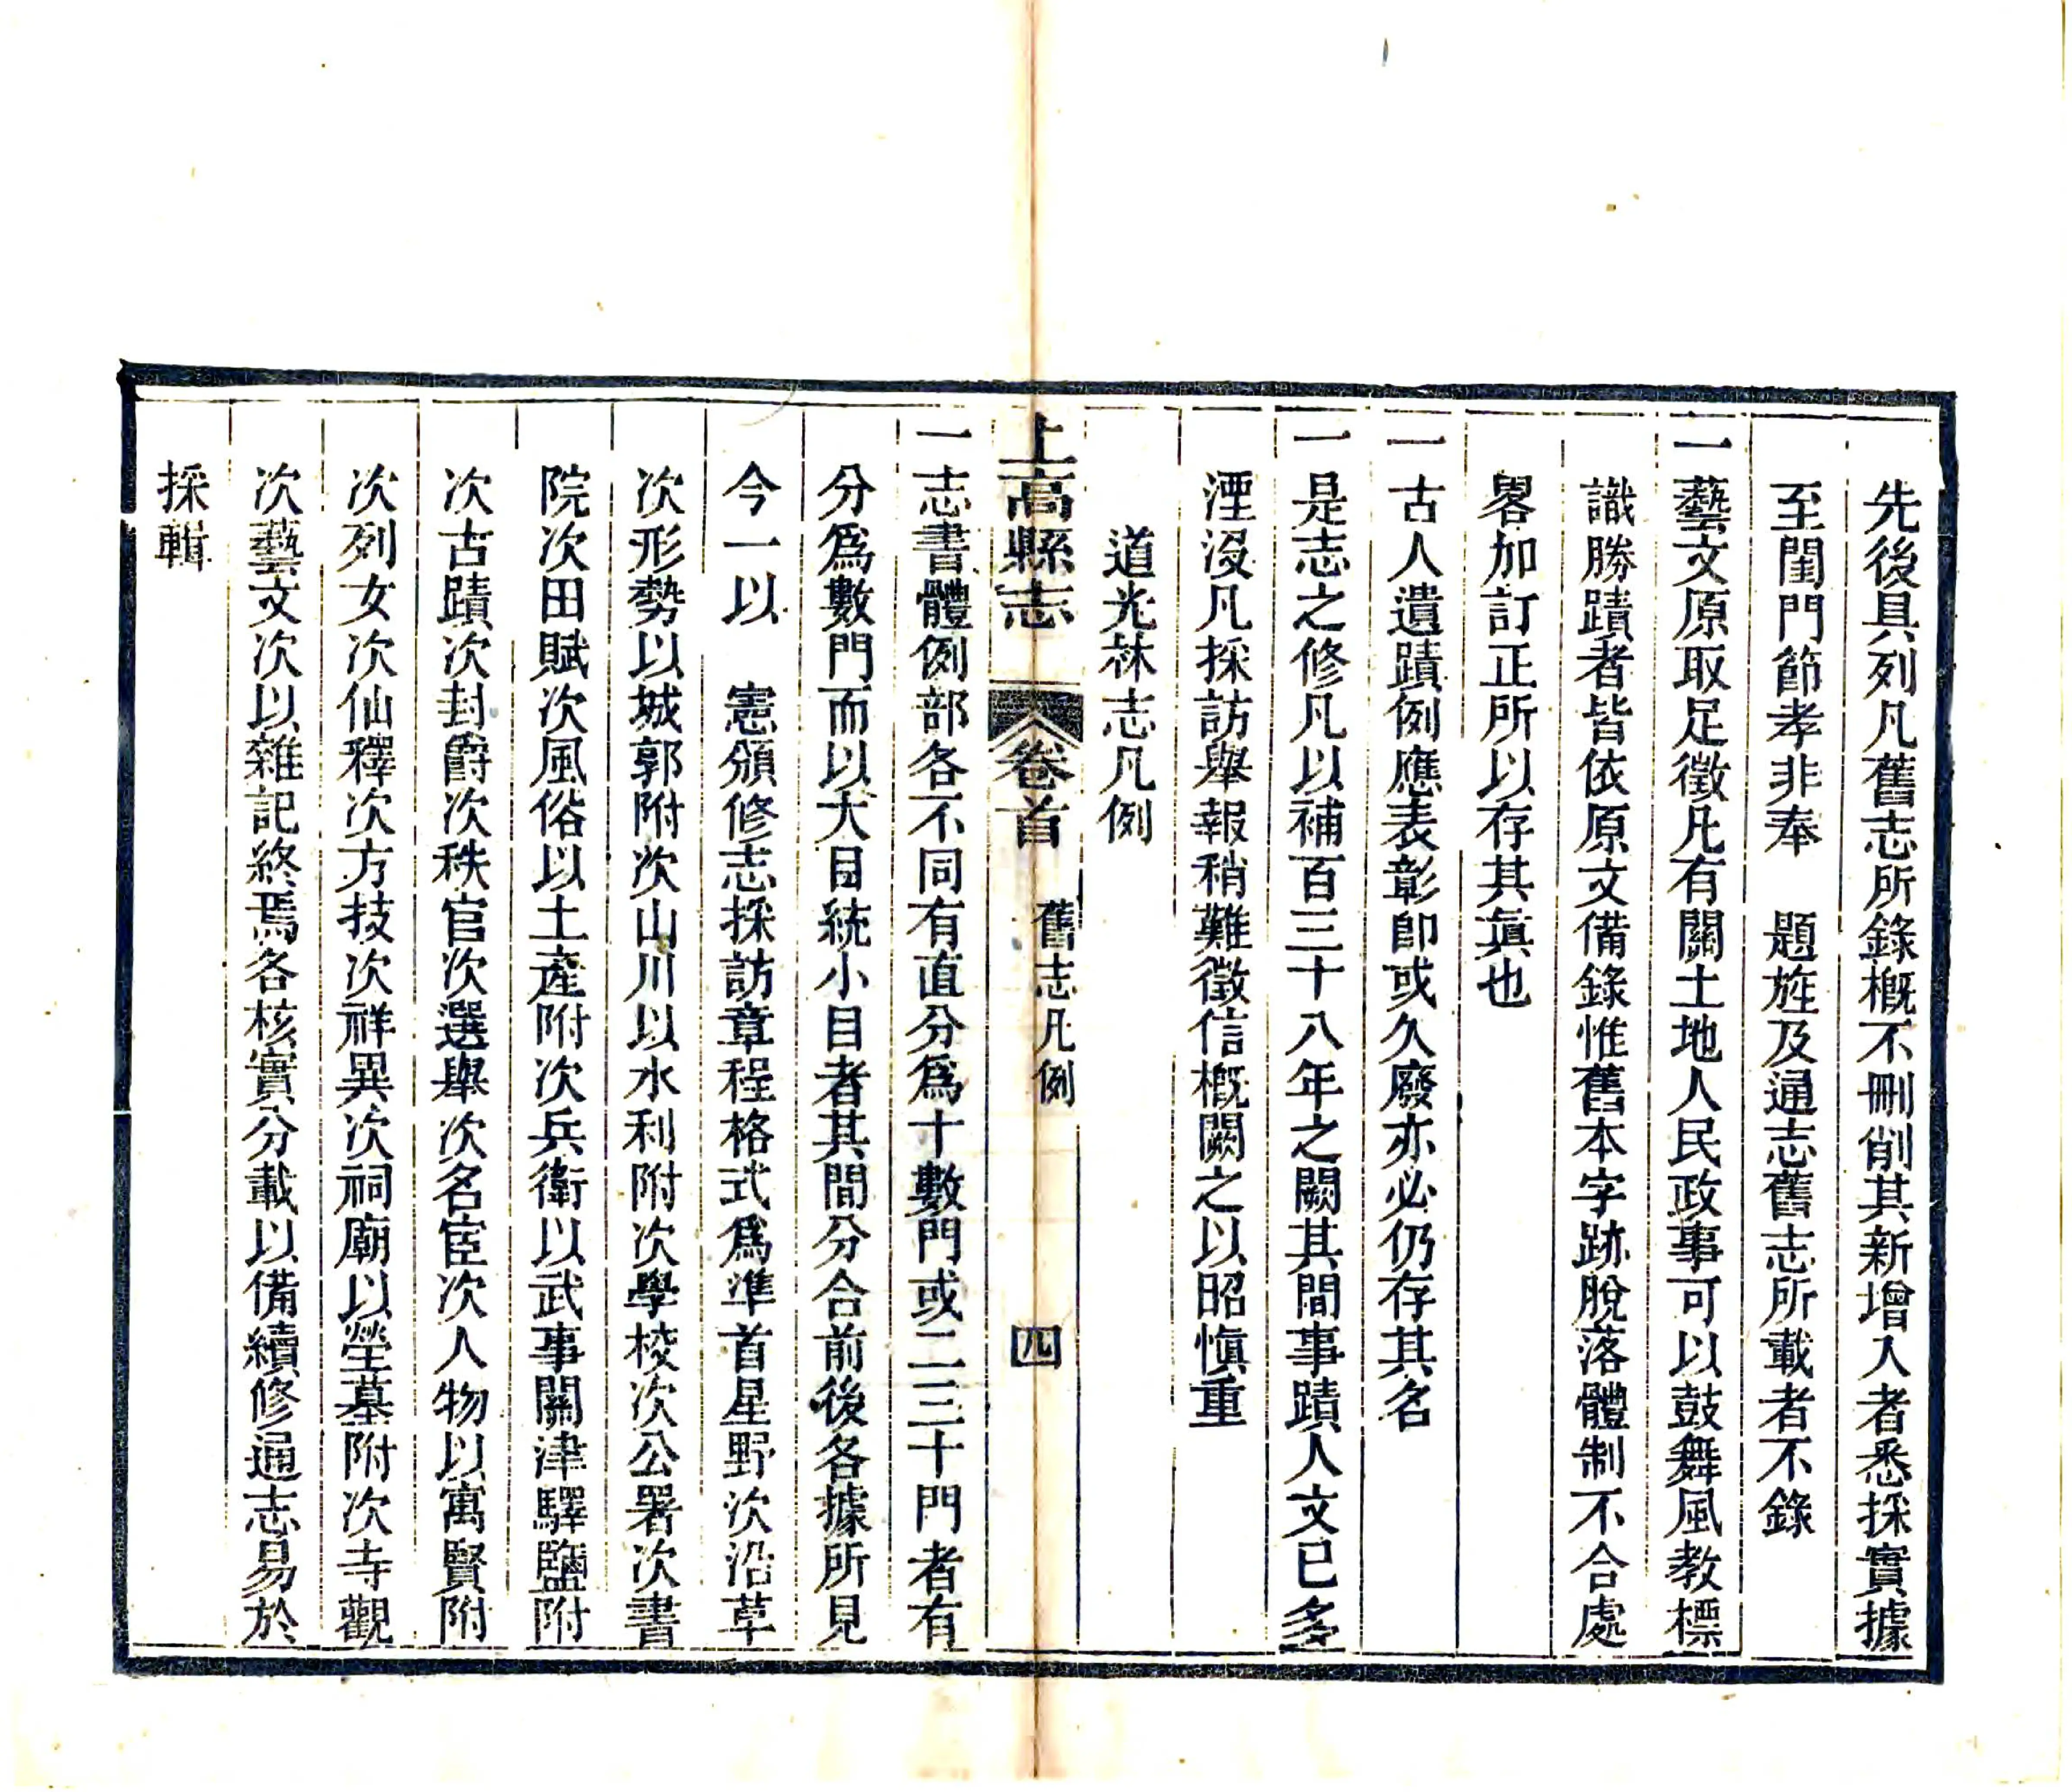 先後具列凡舊志所錄概不刪削其新增入者悉採實據
至閨門節孝非奉　題旌及通志舊志所載者不錄
一藝文原取足徵凡有關土地人民政事可以鼓舞風教標
識勝蹟者皆依原文備錄惟舊本字跡脫落體制不合處
畧加訂正所以存其眞也
一古人遺蹟例應表彰卽或久廢亦必仍存其名
一是志之修凡以補百三十八年之闕其間事蹟人文已多
湮沒凡採訪舉報稍難徵信概闕之以昭愼重
道光林志凡例
上高縣志　卷首　舊志凡例　四
一志書體例部各不同有直分爲十數門或二三十門者有
分爲數門而以大目統小目者其間分合前後各據所見
今一以　憲頒修志採訪章程格式爲準首星野次沿革
次形勢以城郭附次山川以水利附次學校次公署次書
院次田賦次風俗以土產附次兵衛以武事關津驛鹽附
次古蹟次封爵次秩官次選舉次名宦次人物以寓賢附
次列女次仙釋次方技次祥異次祠廟以塋墓附次寺觀
次藝文次以雜記終焉各核實分載以備續修通志易於
採輯